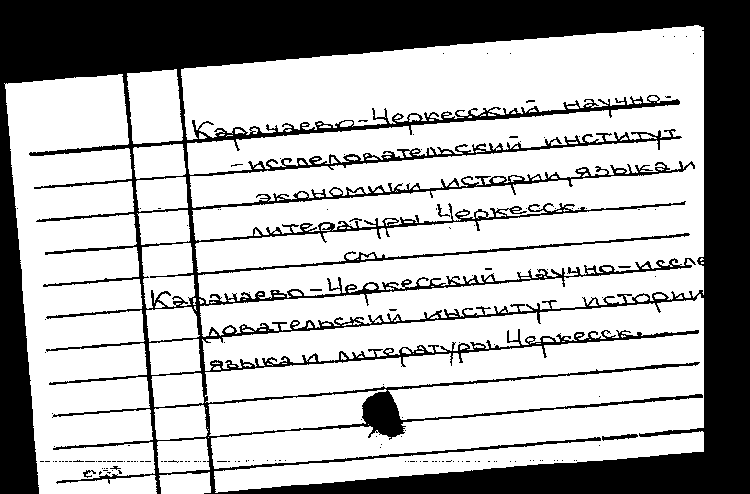 Карачаево-Черкесский научно-
-исследовательский институт
экономики, истории, языка и
литературы. Черкесск.
см.
Карачаево-Черкесский научно-иссле
довательский институт истории
языка и литературы. Черкесск.